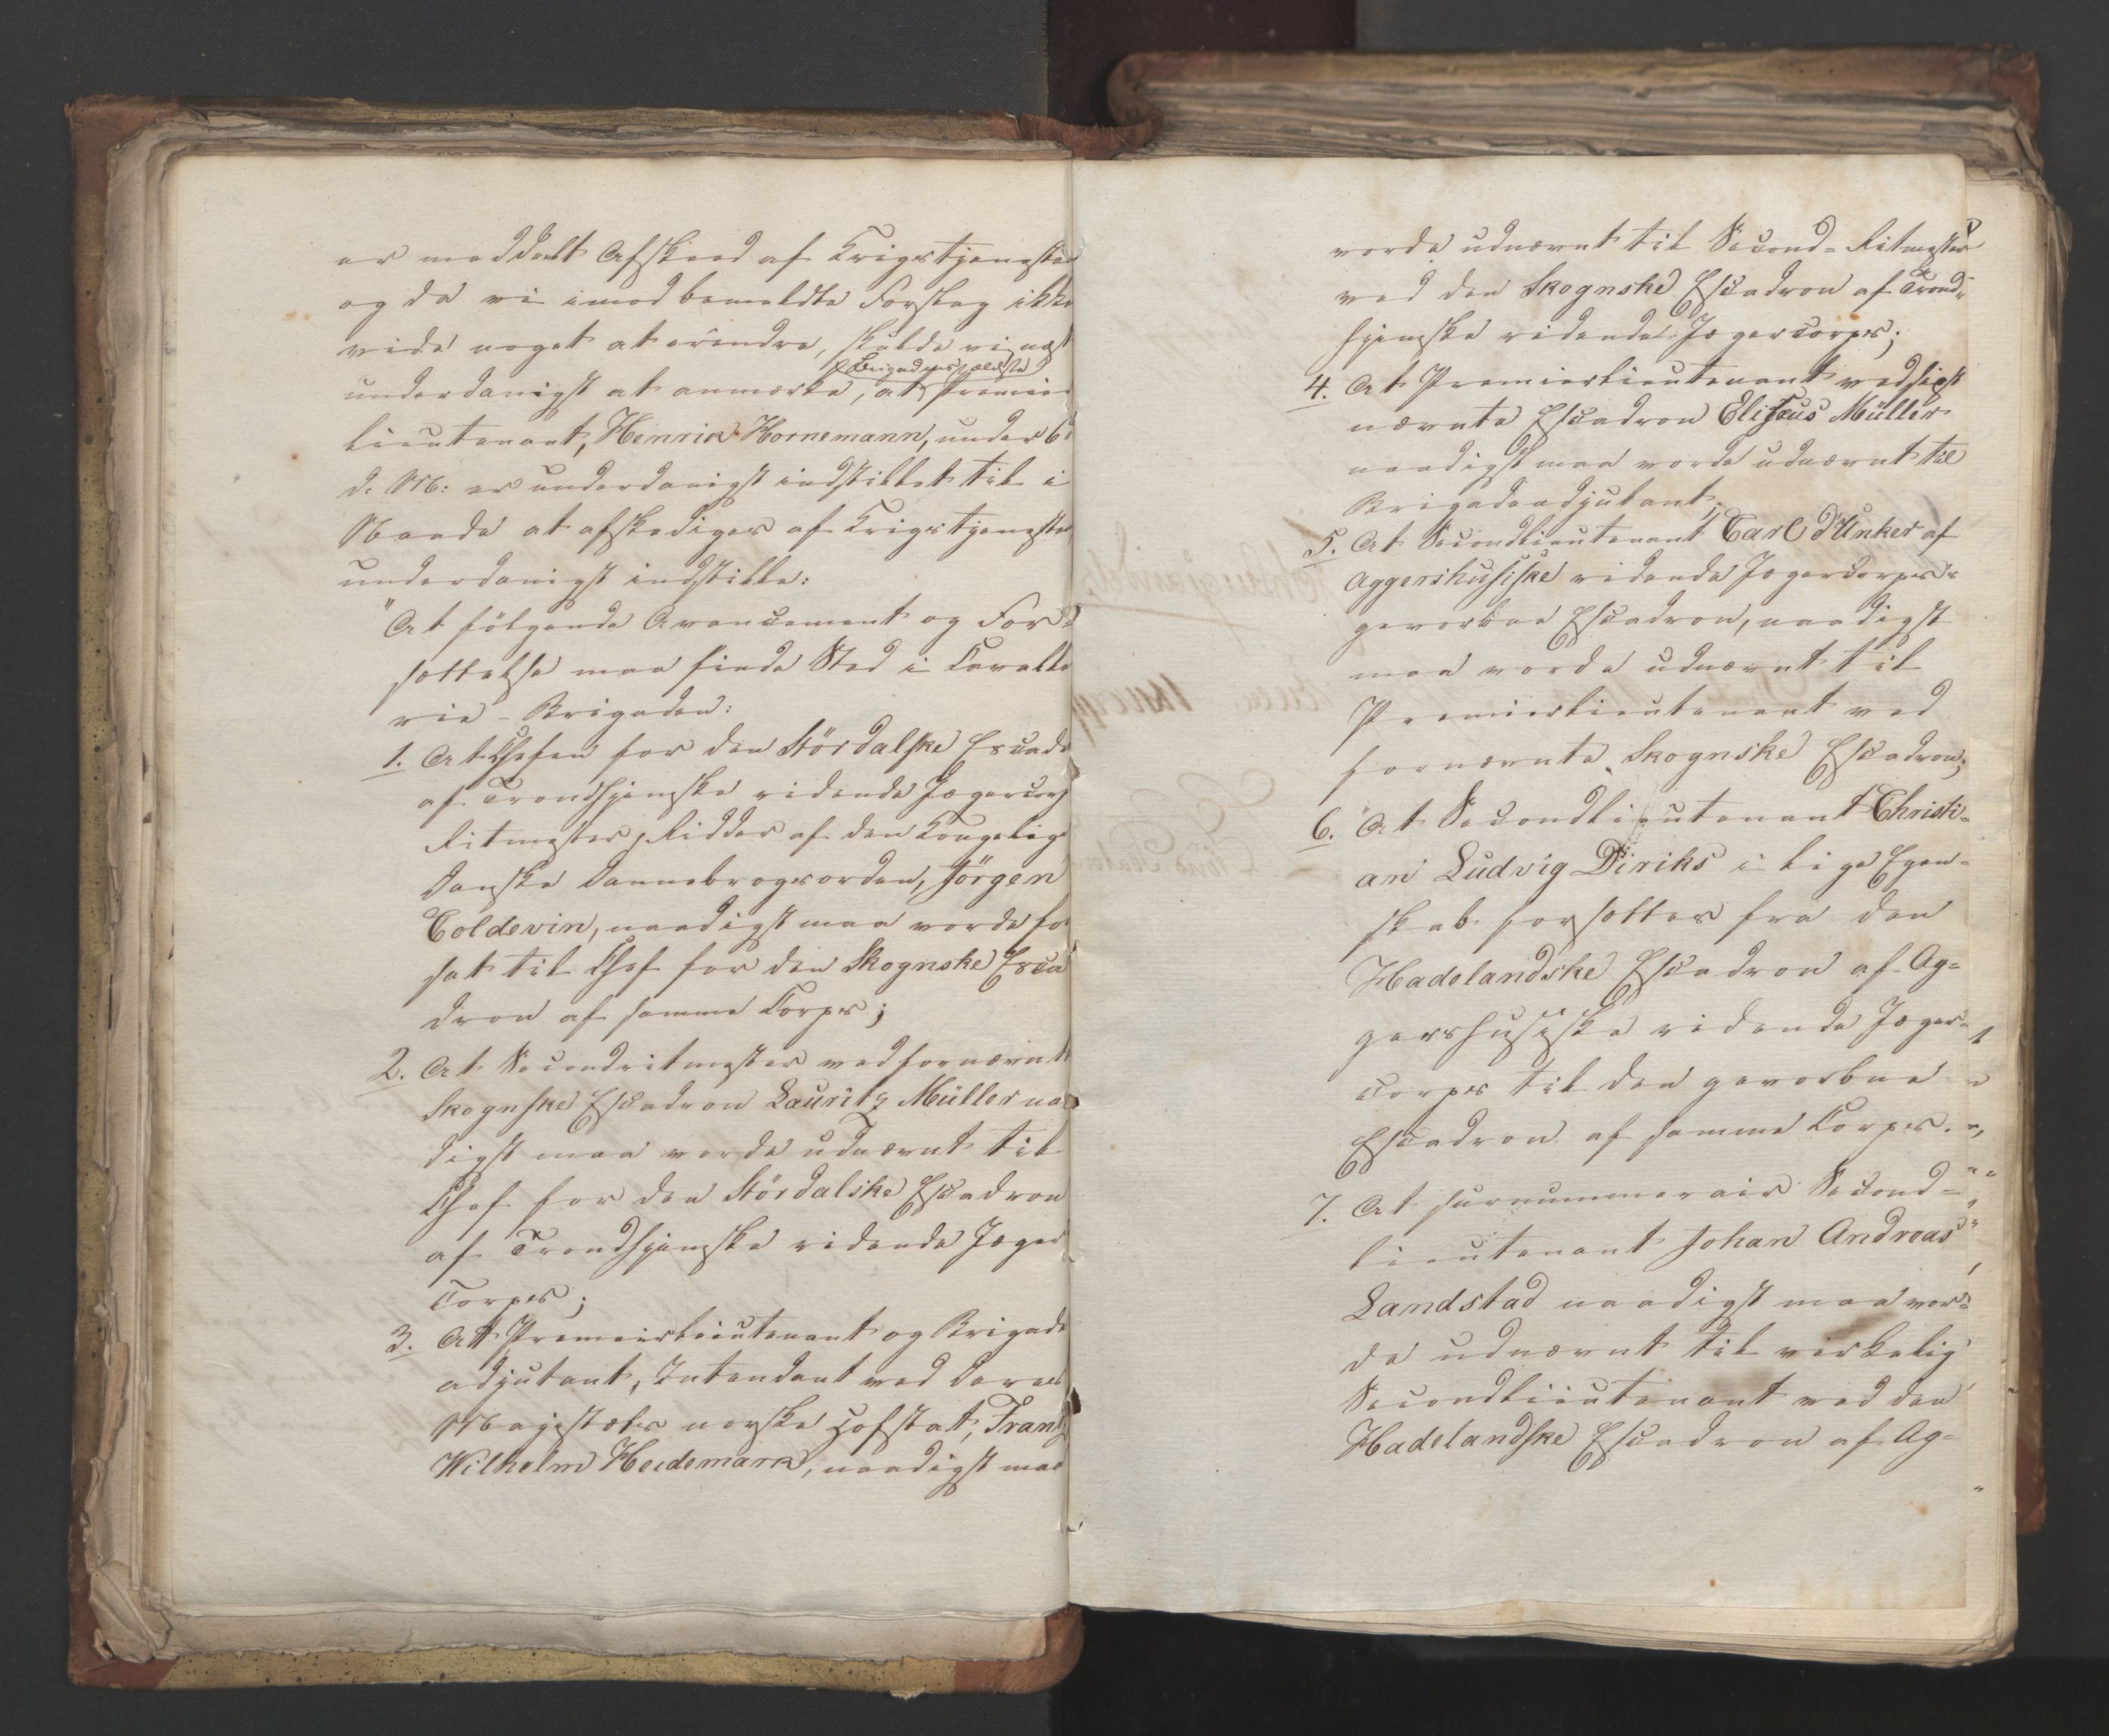 er meddeelt Afskeed af Krigstjenesten
og da vi imod bemeldte Forslag ikke
vide noget at erindre, skulde vi næst
underdanigst at anmærke, at Premier
Brigadens ældste
lieutenant, Henrik Hornemann, under 6te
d: M: er underdanigst indstillet til i
Naade at afskediges af Krigstjenesten
underdanigst indstille:
"At følgende Avancement og For=
sættelse maa finde Sted i Cavalle
rie-Brigaden:
1. At Chefen for den Stördalske Escadr
af Trondhjemske ridende Jægercorps
Ritmester, Ridder af den Kongelige
danske Dannebrogsorden, Jörgen
Coldevin, naadigst maa vorde for
sat til Chef for den Skognske Esca
dron af samme Corps;
2. At Secondritmester ved fornævnte
Skognske Escadron Lauritz Müller naa
digst maa vorde udnævnt til
Chef for den Stördalske Escadron
af Trondhjemske ridende Jæger
Corps;
3. At Premierlieutenant og Brigade
adjutant, Intendant ved Deres
Majestæts norske Hofstat, Frantz
Wilhelm Heidemark, naadigst maa
vorde udnævnt til Second-Ritmester
ved den Skognske Escadron af Trond=
hjemske ridende Jægercorps;
4. At Premierlieutenant ved sidst
nævnte Escadron Eliseus Müller
naadigst maa vorde udnævnt til
Brigadeadjutant;
5. At Secondlieutenant Carl d'Unker af
Aggershusiske ridende Jægercorps's
gevorbne Escadron, naadigst
maa vorde udnævnt til
Premierlieutenant ved
fornævnte Skognske Escadron;
6. At Secondlieutenant Christi=
an Ludvig Diriks i lige Egen=
skab forsættes fra den
Hadelandske Escadron af Ag=
gershusiske ridende Jæger=
corps til den gevorbne
Escadron af samme Corps.
7. At surnummerair Second=
lieutenant Johan Andreas
Landstad naadigst maa vor=
de udnævnt til virkelig
Secondlieutenant ved den
Hadelandske Escadron af Ag=